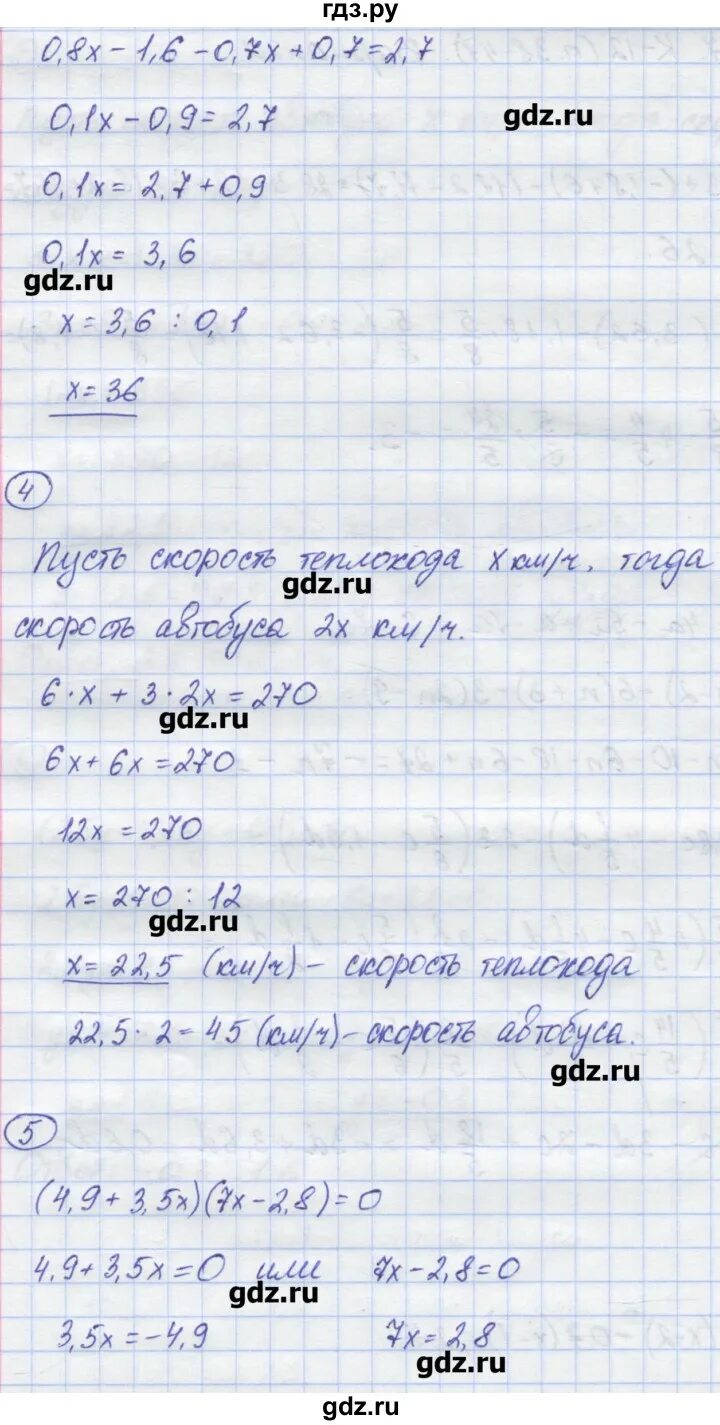 гдз.ру
0,8x - 1,6 - 0,7x + 0,7 = 2,7
0,1x - 0,9 = 2,7
gdz.ru
0,1x = 2,7 + 0,9
0,1x = 3,6
gdz.ru
x = 3,6 : 0,1
x = 36
4
Пусть скорость теплохода x км/ч, тогда
gdz.ru
скорость автобуса 2x км/ч.
6·x + 3·2x = 270
gdz.ru
6x + 6x = 270
12x = 270
x = 270 : 12
gdz.ru
x = 22,5 (км/ч) - скорость теплохода
22,5 · 2 = 45 (км/ч) - скорость автобуса.
gdz.ru
5
(4,9 + 3,5x)(7x - 2,8) = 0
4,9 + 3,5x = 0 или 7x - 2,8 = 0
gdz.ru
3,5x = -4,9 7x = 2,8
gdz.ru
gdz.ru